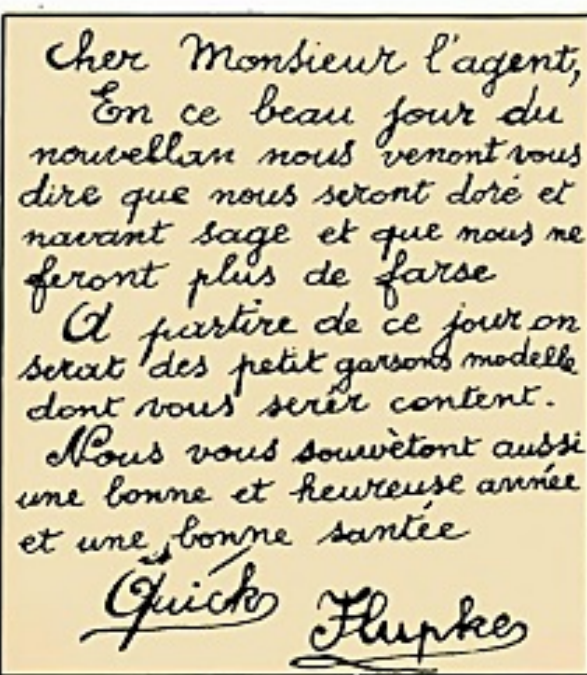 Cher Monsieur l'agent,
En ce beau jour du
nouvellan nous venont vous
dire que nous seront doré et
navant sage et que nous ne
feront plus de farse
A partire de ce jour on
serat des petit garsons modelle
dont vous serér content.
Nous vous souvètont aussi
une bonne et heureuse année
et une bonne santée
Quick
Flupke